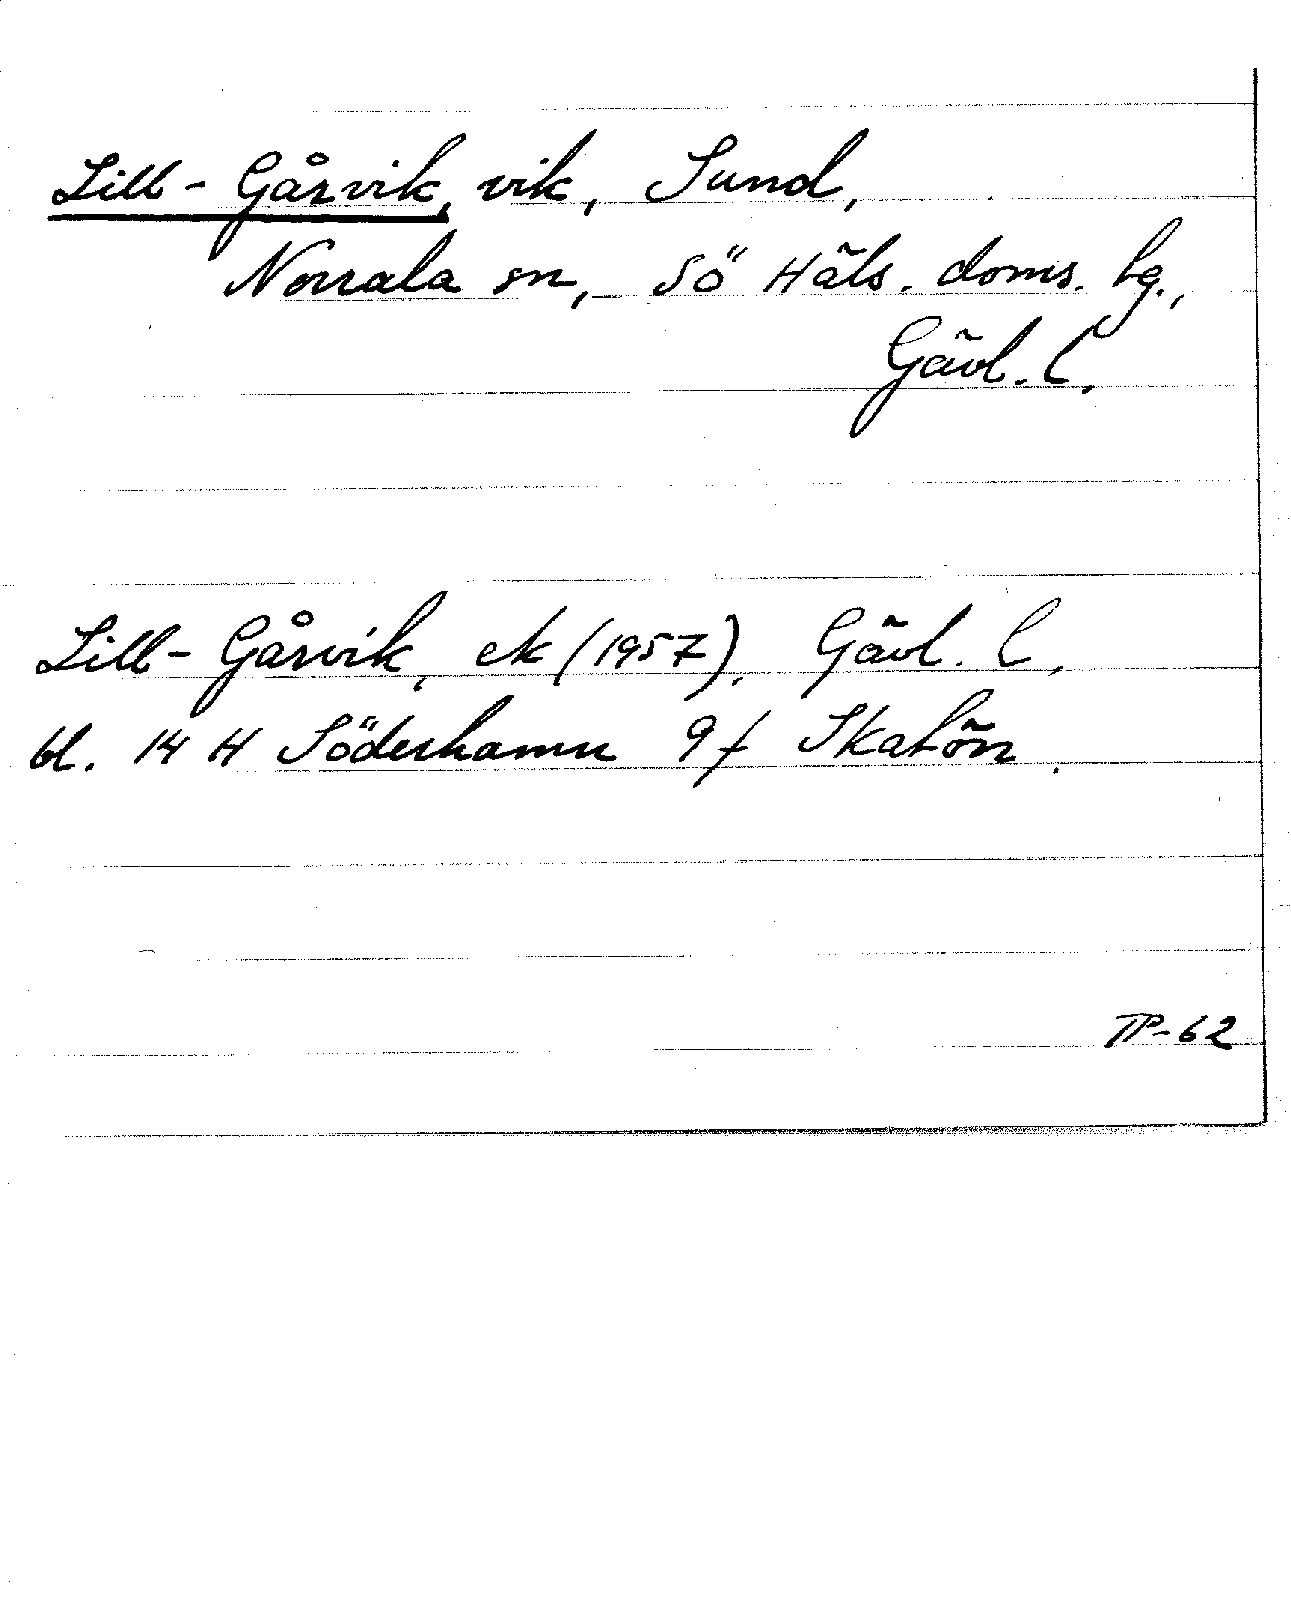 Lill-Gåsvik, vik, Sund,
Norrala sn, Sö Häls. doms. hg.,
Gävl. l.
Lill-Gåsvik, ek (1957), Gävl. l,
bl. 14 H Söderhamn 9f Skatön.
TP-62